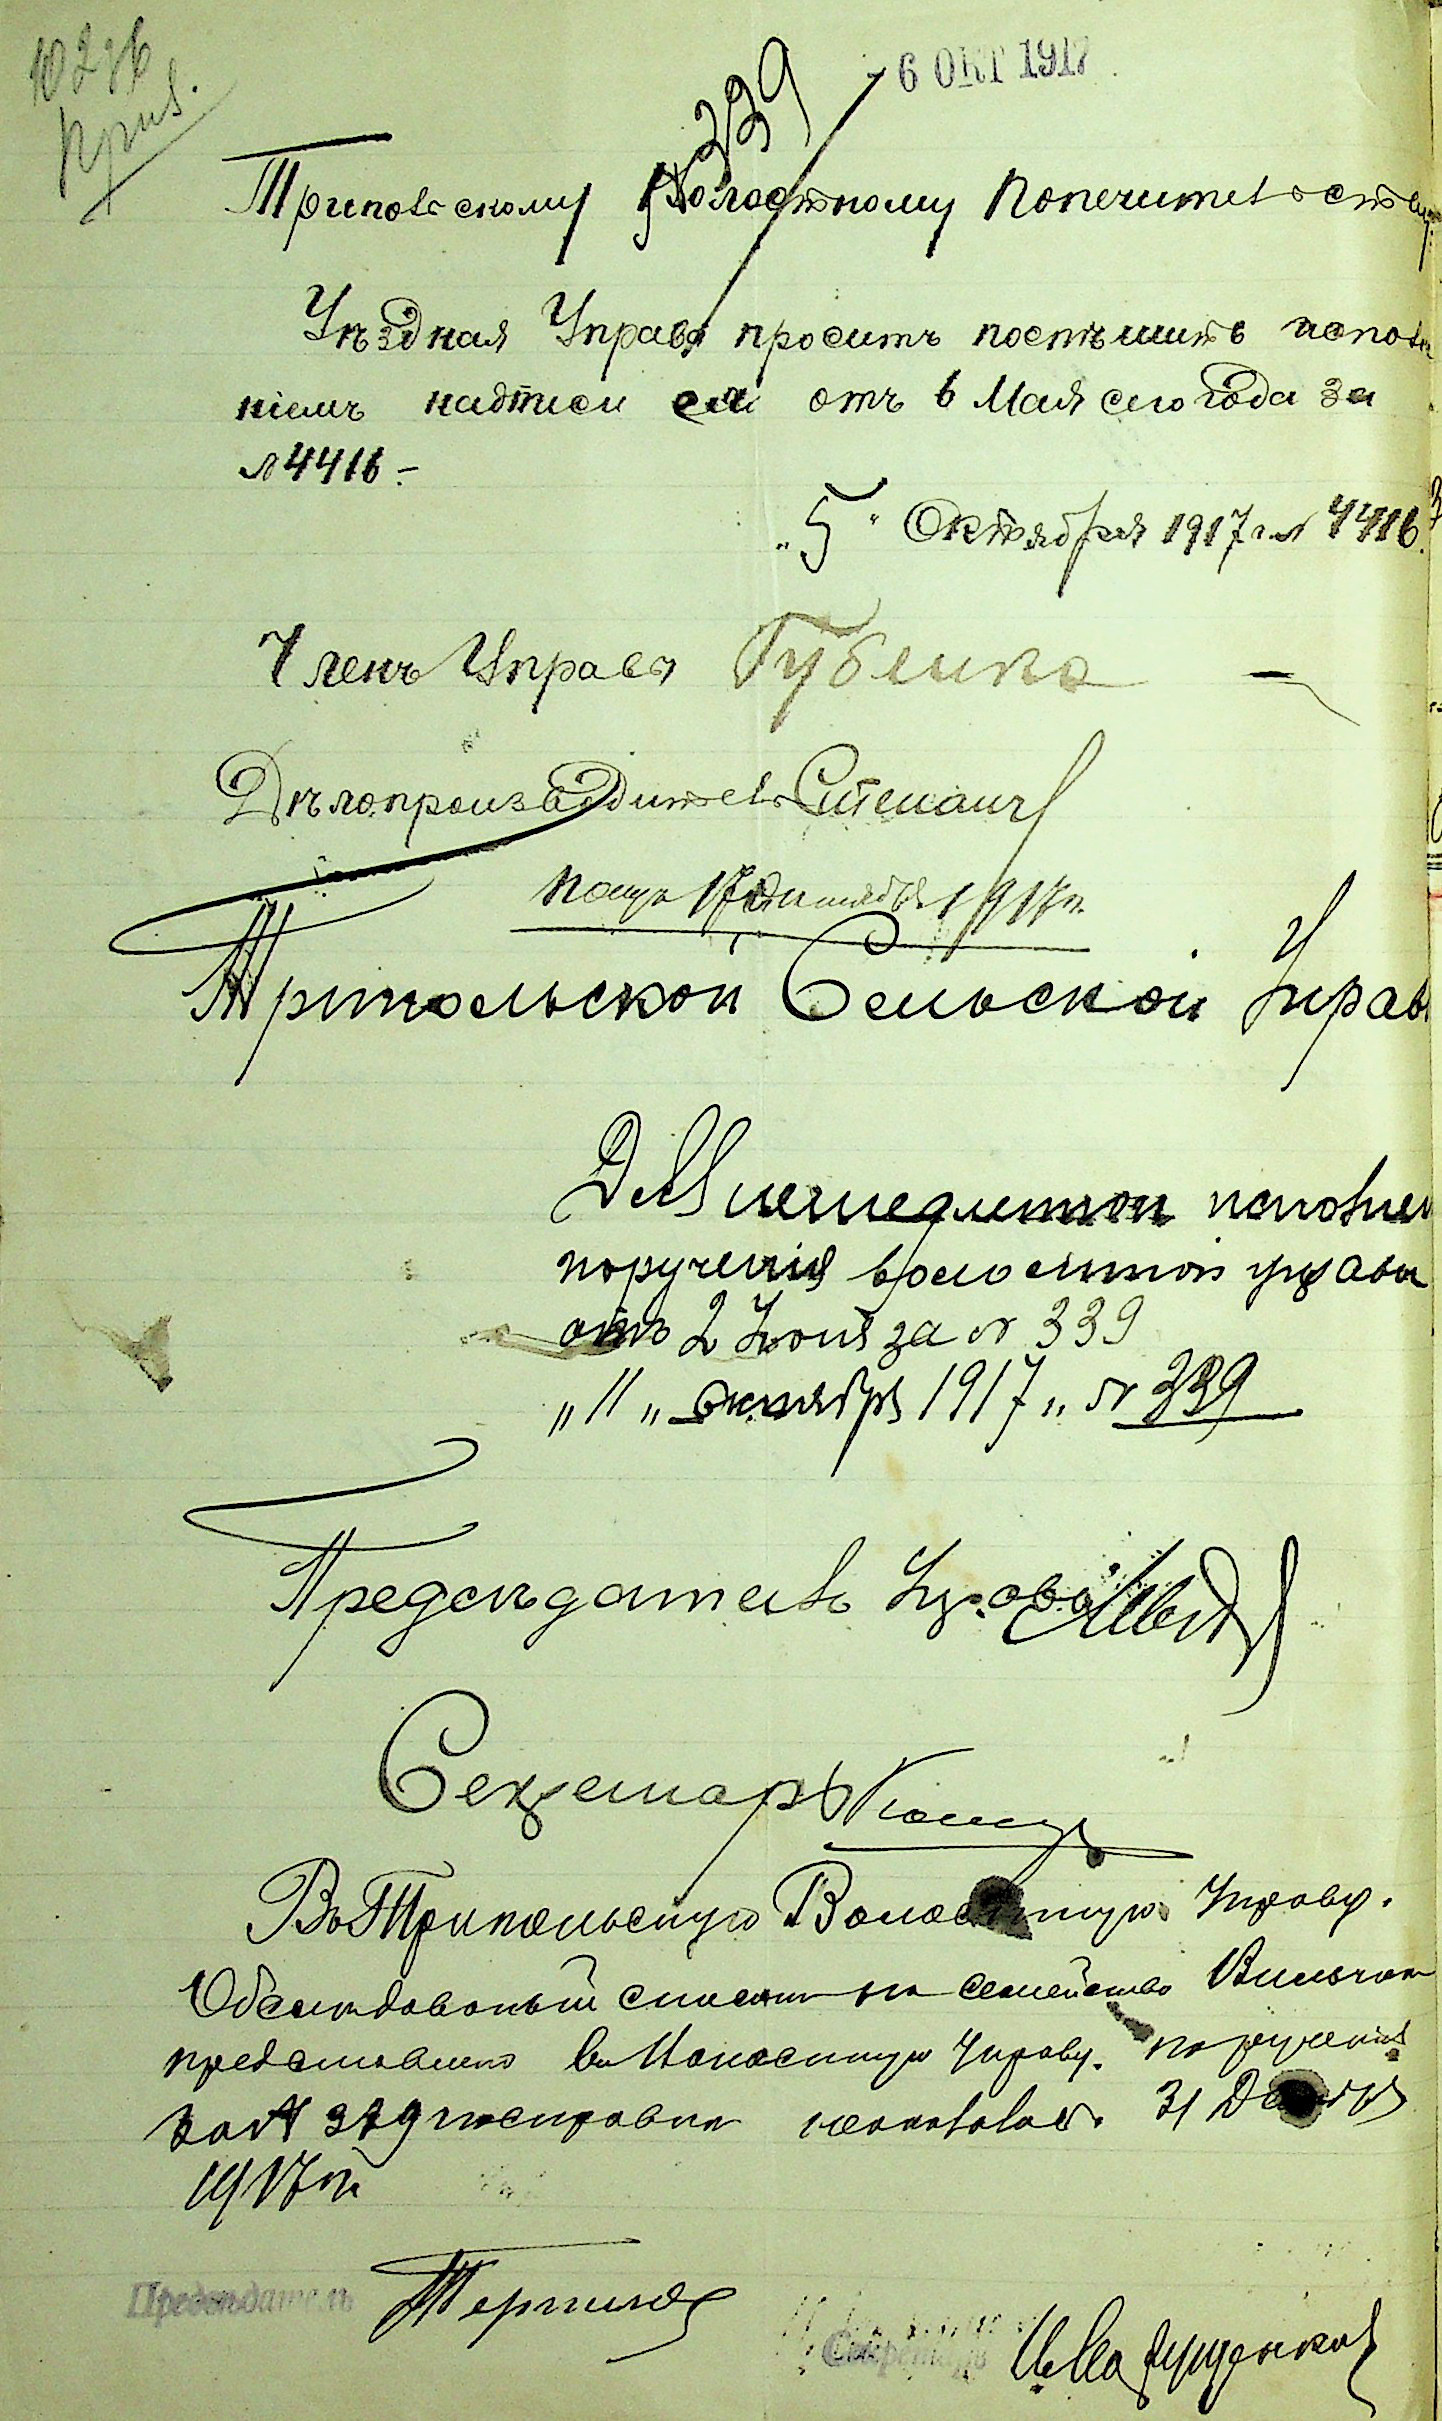 6 ОКТ 1917
339
Трипольскому Волостному Попечительству
Уѣздная Управа проситъ поспѣшить исполне
ніемъ надписи ея отъ 6 Мая сего года за
№ 4416.-
„5“ Октября 1917 г. № 4416.
Членъ Управы Губенко
Дѣлопроизводитель
Получ 17 Октября 1917 г.
Трипольской Сельской Управѣ
Для немедленнаго исполнен
порученія волостной управы
отъ 2 Іюня за № 339
„11„ октября 1917 „ № 339
Предсѣдатель Управы
Секретарь
Въ Трипольскую Волостную Управу.
Обслѣдованый списокъ на семейство
представлено въ Волостную Управу. порученія
за № 339 31
1917 г.
Предсѣдатель
Секретарь